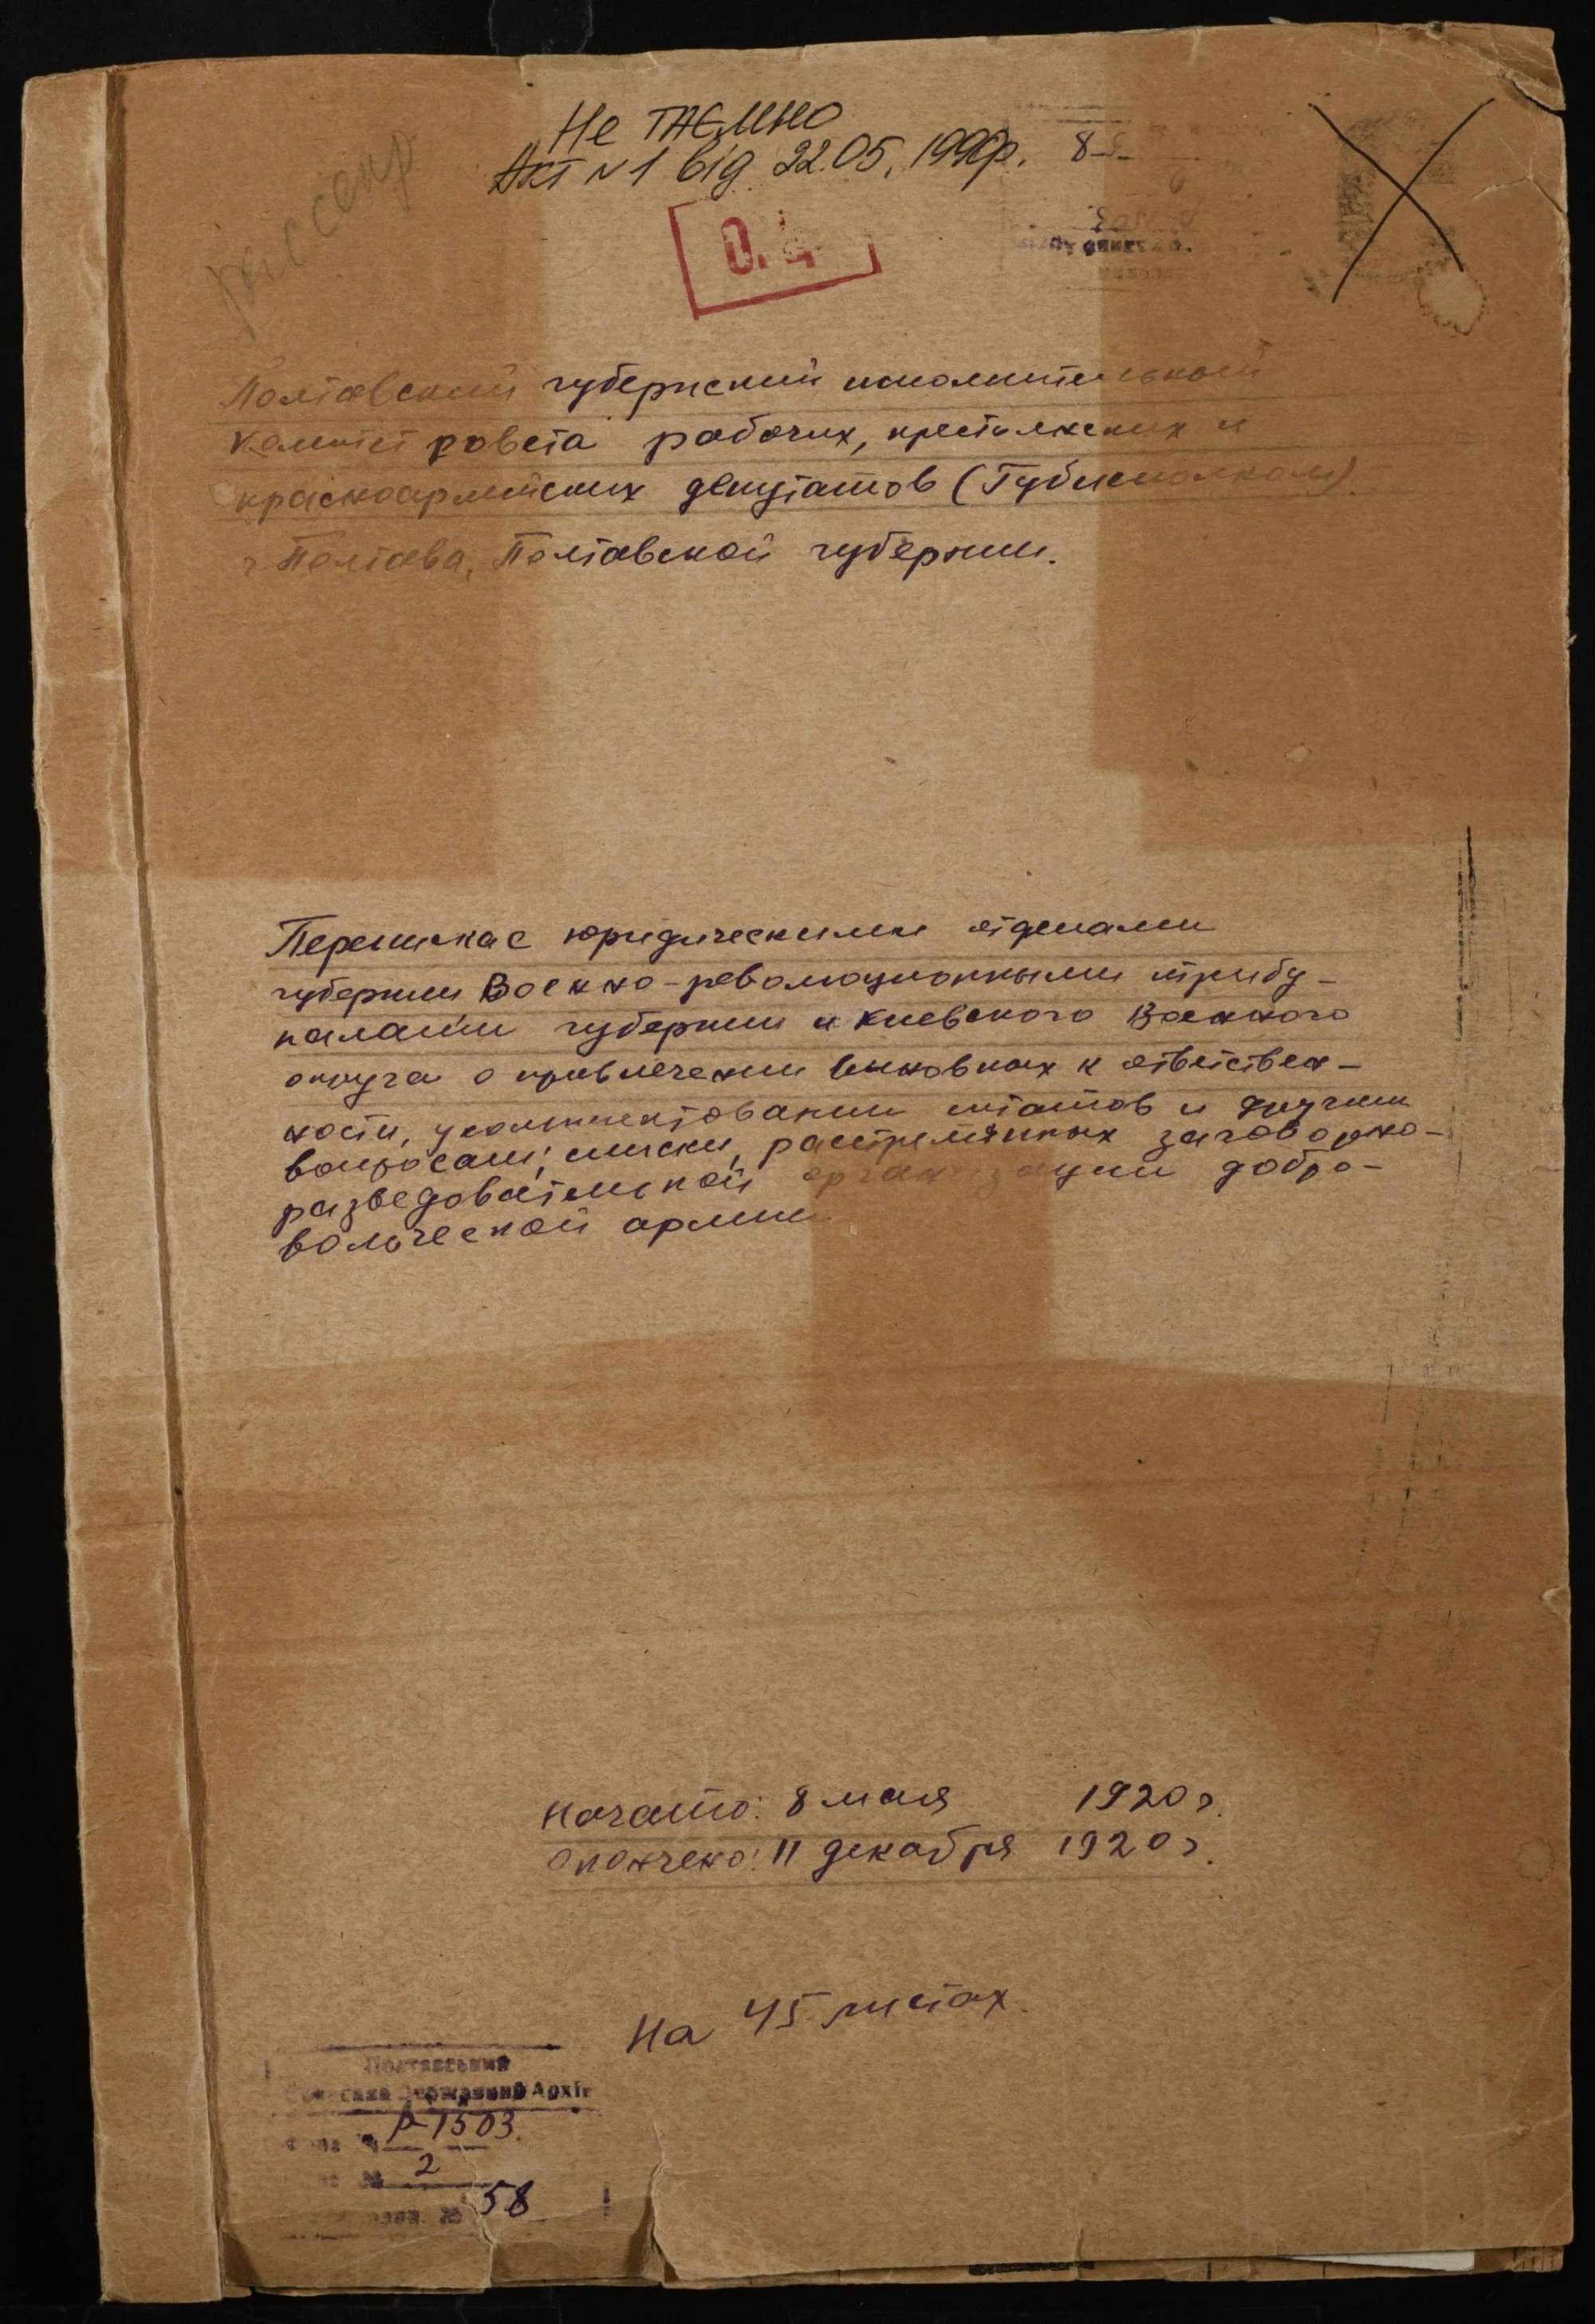 Не ТАЄМНО
Акт №1 від 22.05.1990р.
рассекр
О.Ц
Полтавский губернский исполнительный
комитет совета рабочих, крестьянских и
красноармейских депутатов (Губисполком)
г Полтава, Полтавской губернии.
Переписка с юридическими отделами
губернии Военно-революционными трибу-
налами губернии и Киевского Военного
округа о привлечении виновных к ответствен-
ности, укомплектовании штатов и другим
вопросам; списки, расстрелянных заговорно-
разведовательской организации добро-
вольческой армии
Начато: 8 мая 1920 г.
Окончено: 11 декабря 1920 г.
На 45 листах.
Полтавський
Державний Архів
Р-1503.
2
58